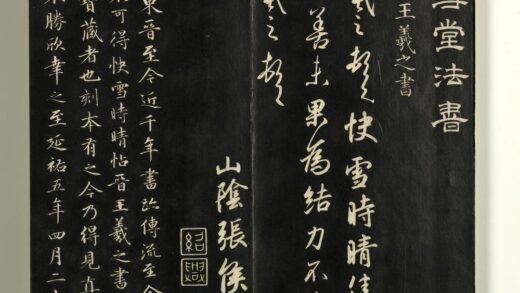 堂法書
王羲之書
羲之頓首快雪時晴佳
善未果為結力不
羲之頓首
山陰張侯
紹興
東晉至今近千年書跡傳流至今
可得快雪時晴帖晉王羲之書
寶藏者也刻本有之今乃得見真
不勝欣幸之至延祐五年四月二